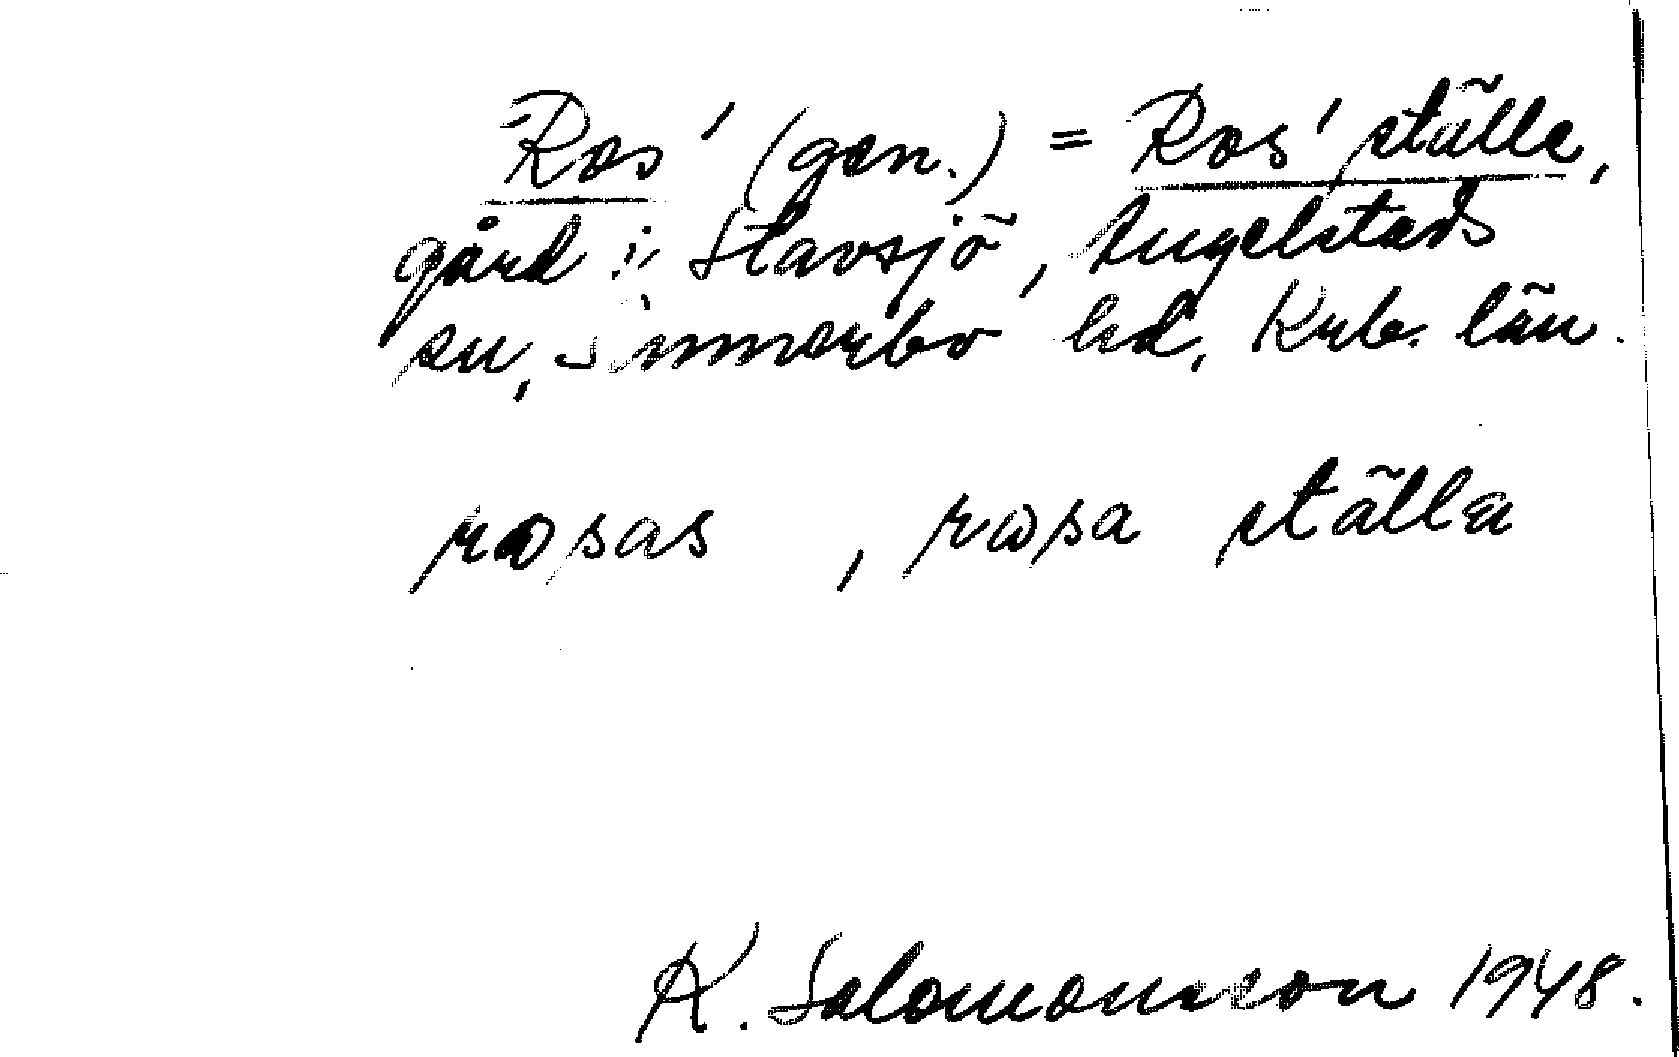 Ros' (gen.) = Ros' ställe,
gård i Stavsjö, Angelstads
sn, Sunnerbo hd, Krb. län.
rosas, rosa ställe
K. Salomonsson 1948.